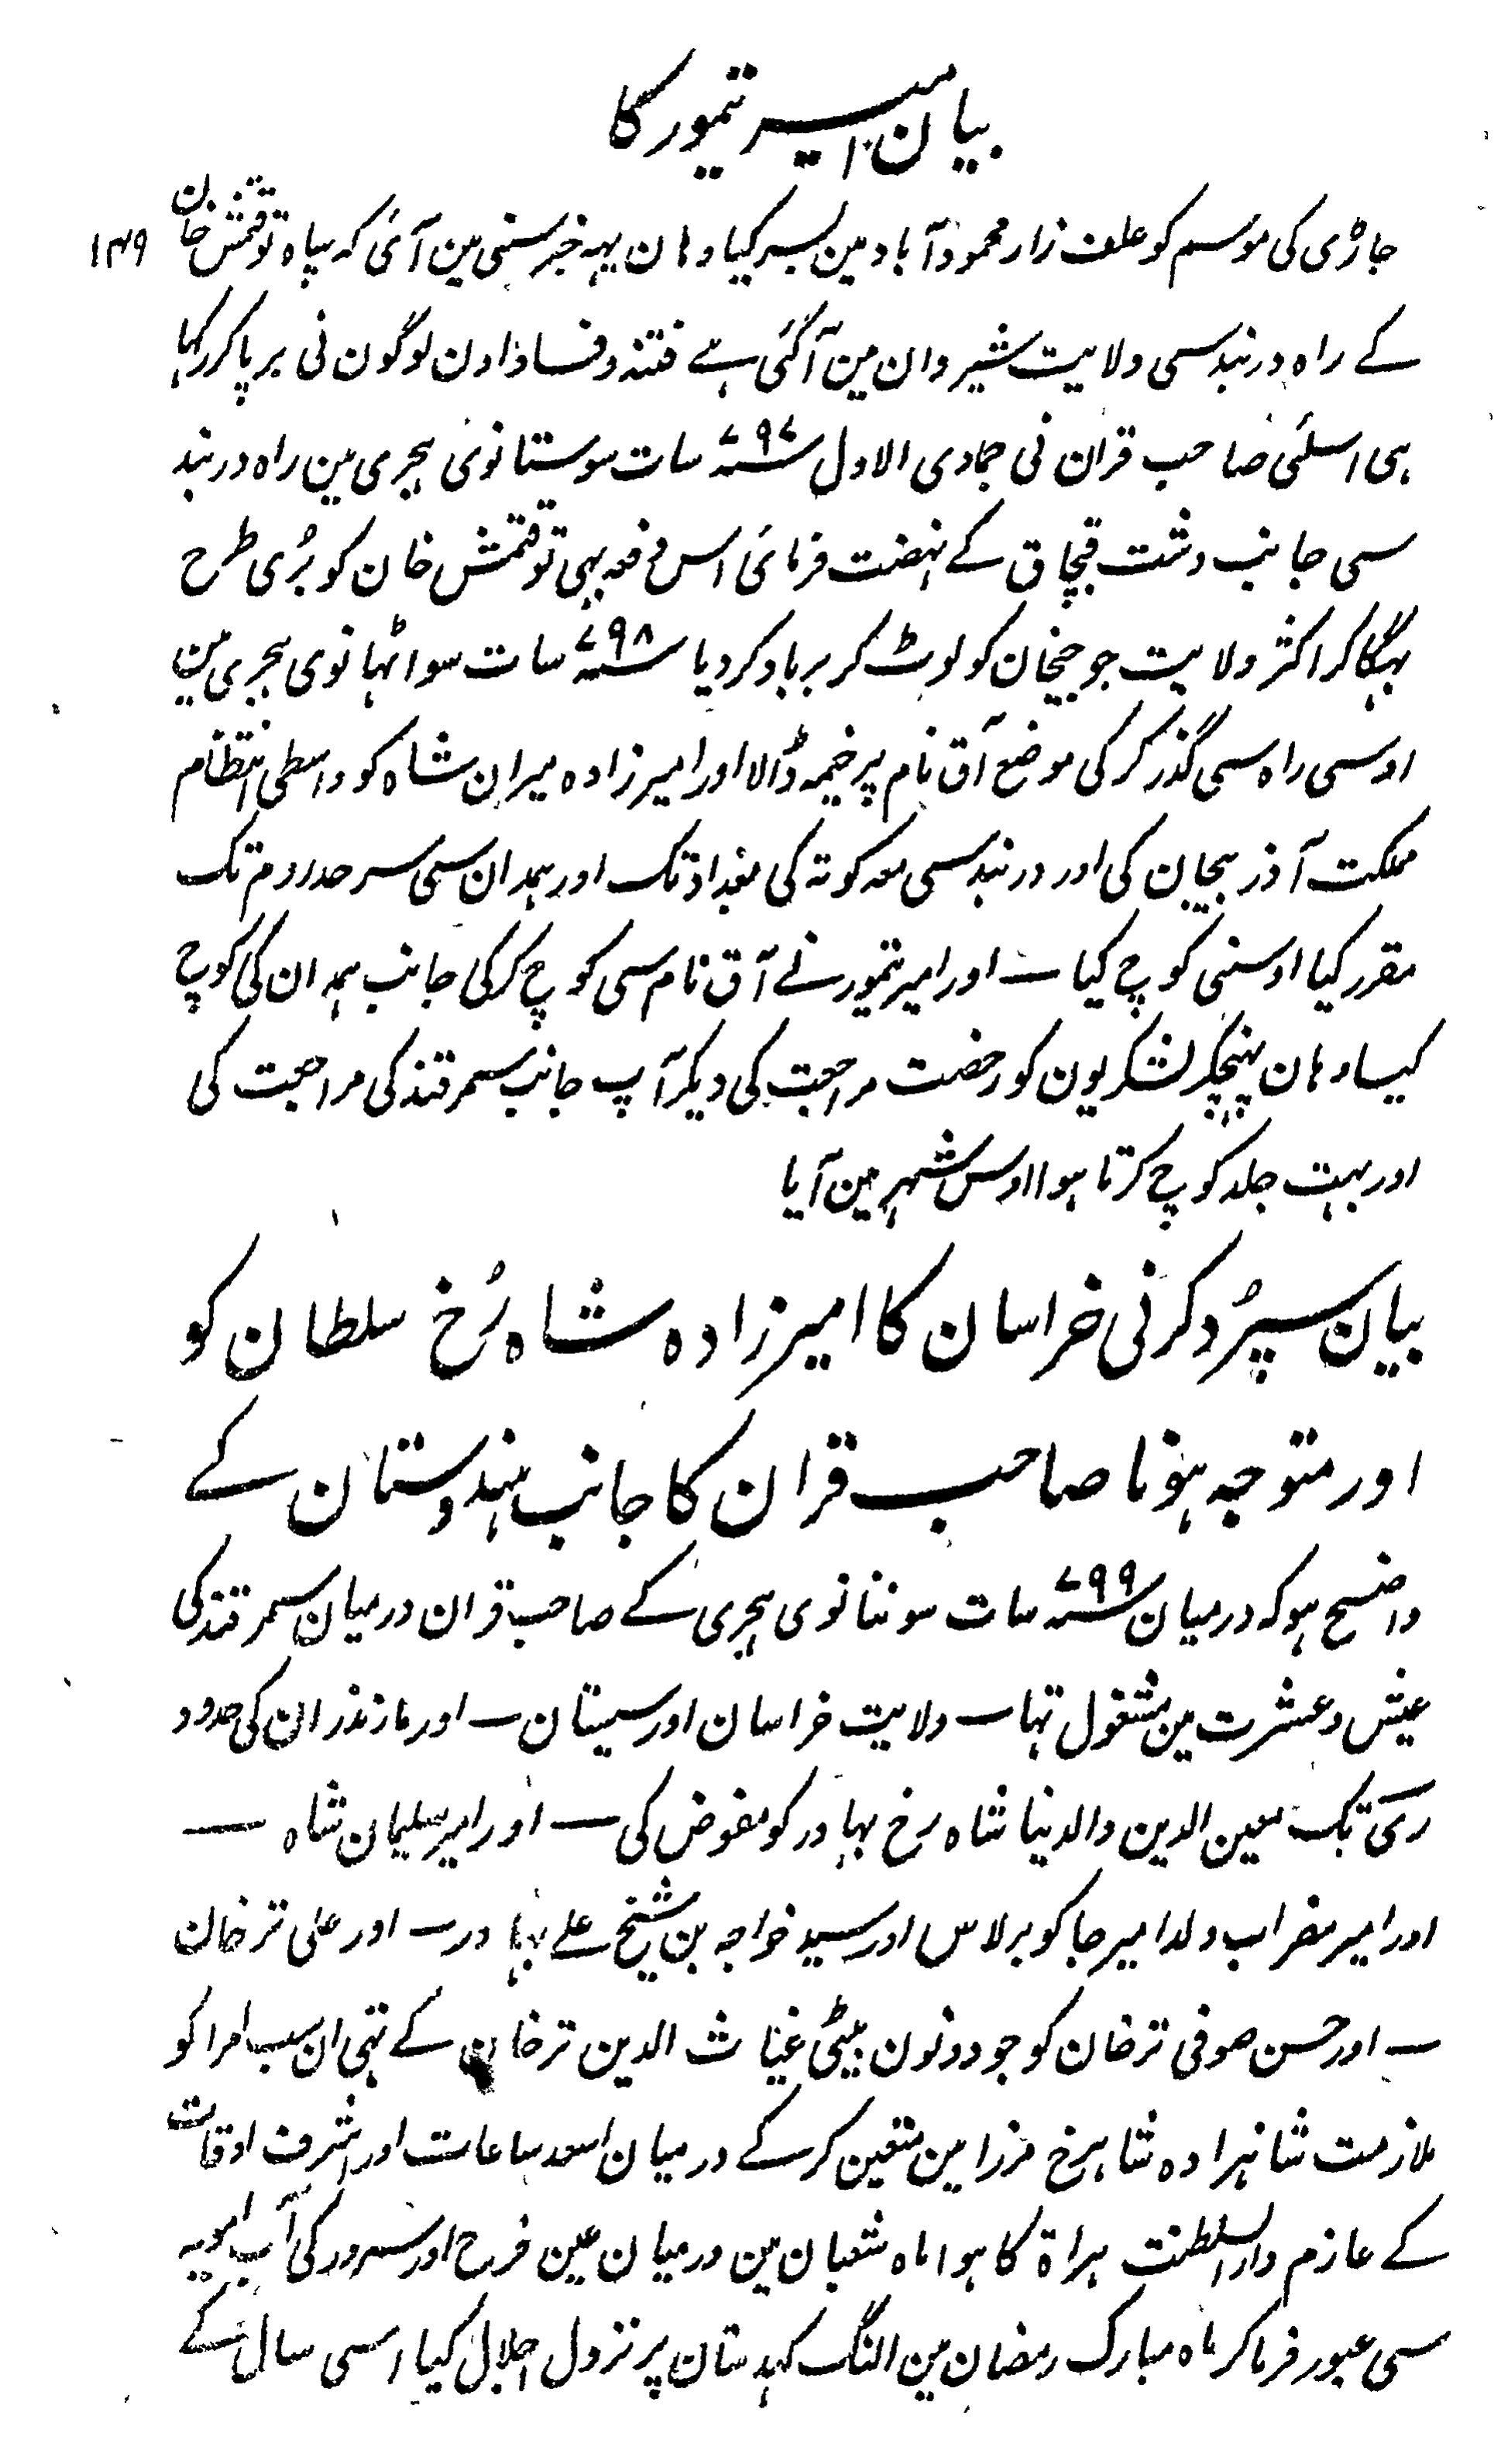 بیان امیر تیمور کا
جاڑی کی موسم کو علف زار محمود آباد مین بسر کیا وہان یہہ خبر سننی مین آئی کہ سپاہ توقتمش خان ۱۴۹
کے راہ دربند سی ولایت شیروان مین آگئی ہے فتنہ و فساد اون لوگون نی برپا کر رکہا
ہی اسلئی صاحب قران نی جمادی الاول ۷۹۷؁ سات سو ستانوی ہجری مین راہ دربند
سی جانب دشت قبچاق کے نہضت فرمائی اس دفعہ بہی توقتمش خان کو بُری طرح
بہگا کر اکثر ولایت جوجیخان کو لوٹ کر برباد کر دیا ۷۹۸؁ سات سو اٹہانوی ہجری مین
اوسی راہ سی گذر کر کی موضع آق نام پر خیمہ ڈالا اور امیر زادہ میران شاہ کو واسطی انتظام
مملکت آذربیجان کی اور دربند سی معہ کوتہ کی بغداد تک اور ہمدان سی سرحد روم تک
مقرر کیا اوسنی کوچ کیا ــ اور امیر تیمور نے آق نام سی کوچ کر کی جانب ہمدان کی کوچ
کیا وہان پہنچکر لشکریون کو رخصت مراجعت کی دیکر آپ جانب سمرقند کی مراجعت کی
اور بہت جلد کوچ کرتا ہوا اوس شہر مین آیا
بیان سپُرد کرنی خراسان کا امیر زادہ شاہ رُخ سلطان کو
اور متوجہ ہونا صاحب قران کا جانب ہندوستان کے
واضح ہو کہ درمیان ۷۹۹؁ سات سو ننانوی ہجری کے صاحب قران درمیان سمرقند کی
عیش و عشرت مین مشغول تہا ــ ولایت خراسان اور سیستان ــ اور مازندران کی حدود
ری تک معین الدین والدنیا شاہ رخ بہادر کو مفوض کی ــ اور امیر سلیمان شاہ ــ
اور امیر مضراب ولد امیر جاکو برلاس اور سید خواجہ بن شیخ علے بہادر ــ اور علی ترخان
ــ اور حسن صوفی ترخان کو جو دونون بیٹی غیاث الدین ترخان کے تہی ان سب امرا کو
ملازمت شاہزادہ شاہرخ مرزا مین متعین کر کے درمیان اسعد ساعات اور اشرف اوقات
کے عازم دار السلطنت ہراۃ کا ہوا ماہ شعبان مین درمیان عین فرح اور سرور کی آب امویہ
سی عبور فرما کر ماہ مبارک رمضان مین النگ کہدستان پر نزول اجلال کیا اسی سال کے